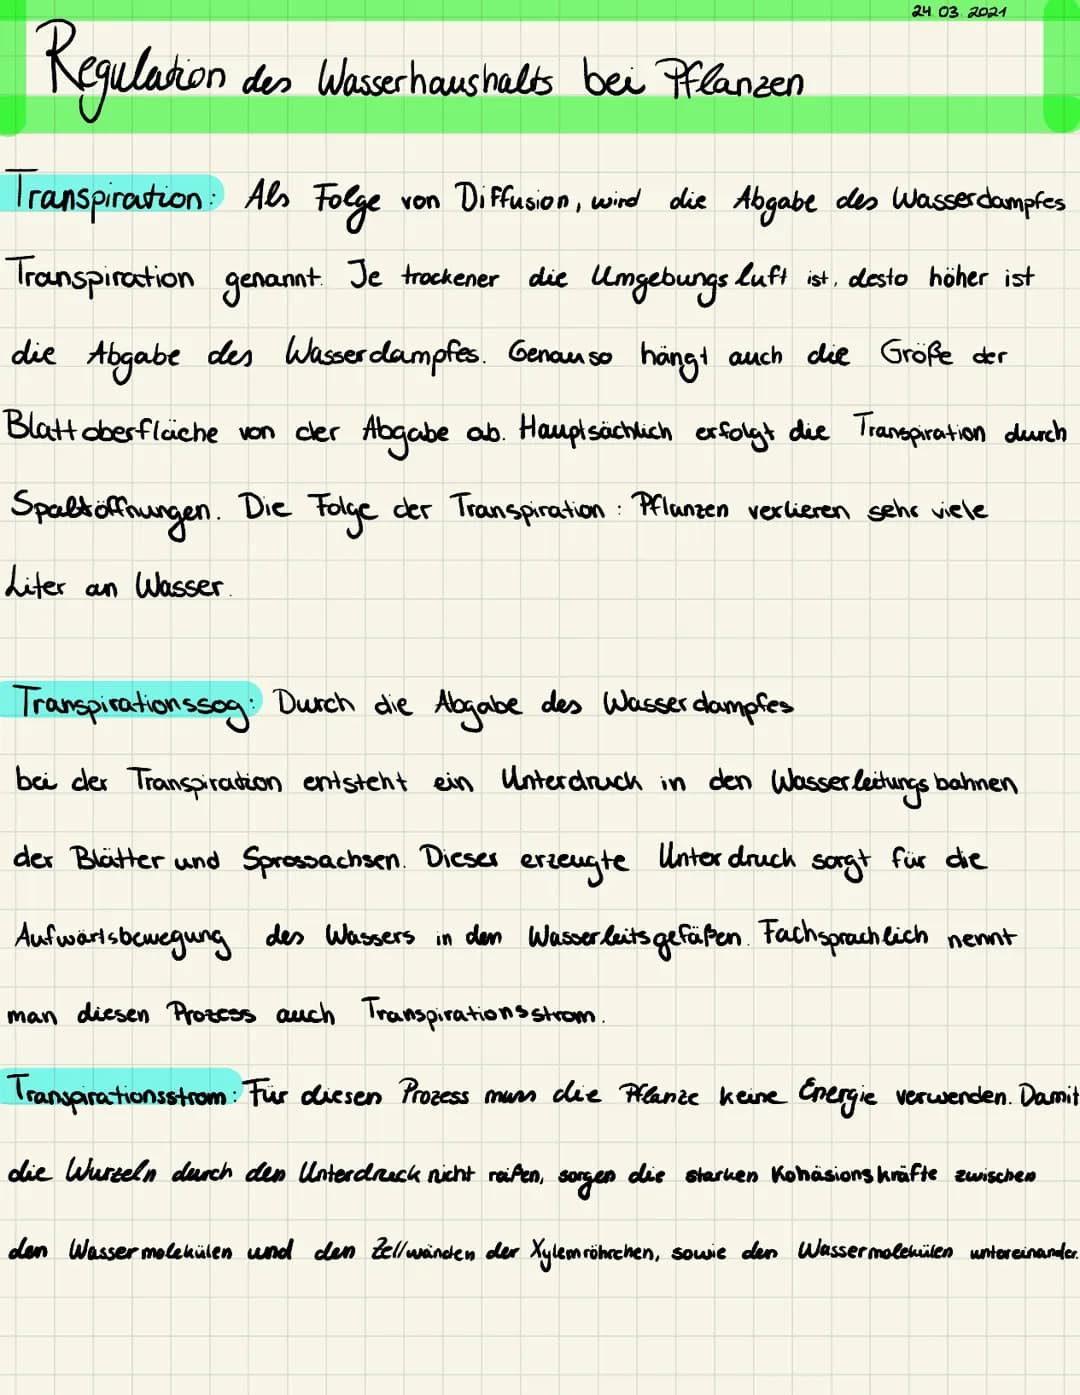 24.03.2021
Regulation des Wasserhaushalts bei Pflanzen
Transpiration: Als Folge von Diffusion, wird die Abgabe des Wasserdampfes
Transpiration genannt. Je trockener die Umgebungsluft ist, desto höher ist
die Abgabe des Wasserdampfes. Genauso hängt auch die Größe der
Blattoberfläche von der Abgabe ab. Hauptsächlich erfolgt die Transpiration durch
Spaltöffnungen. Die Folge der Transpiration: Pflanzen verlieren sehr viele
Liter an Wasser.
Transpirationssog: Durch die Abgabe des Wasserdampfes
bei der Transpiration entsteht ein Unterdruck in den Wasserleitungsbahnen
der Blätter und Sprossachsen. Dieser erzeugte Unterdruck sorgt für die
Aufwärtsbewegung des Wassers in den Wasserleitsgefäßen. Fachsprachlich nennt
man diesen Prozess auch Transpirationsstrom.
Transpirationsstrom: Für diesen Prozess muss die Pflanze keine Energie verwenden. Damit
die Wurzeln durch den Unterdruck nicht reißen, sorgen die starken Kohäsionskräfte zwischen
den Wassermolekülen und den Zellwänden der Xylemröhrchen, sowie den Wassermolekülen untereinander.